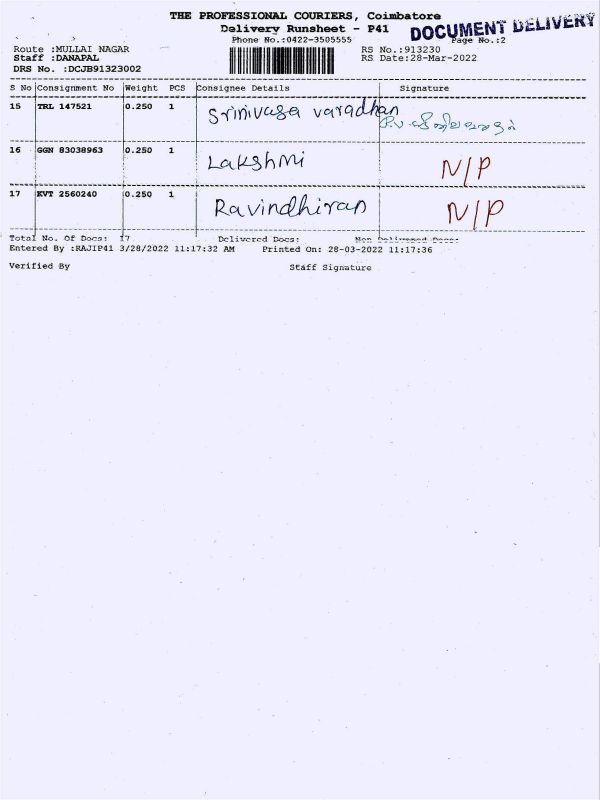 THE PROFESSIONAL COURIERS, Coimbatore
Delivery Runsheet - P41
DOCUMENT DELIVERY
Phone No.:0422-3505555
Page No.:2
Route :MULLAI NAGAR
RS No.:913230
Staff :DANAPAL
RS Date:28-Mar-2022
DRS No. :DCJB91323002
S No Consignment No Weight PCS Consignee Details Signature
15 TRL 147521 0.250 1 Srinivasa varadhan
16 GGN 83038963 0.250 1 Lakshmi N/P
17 KVT 2560240 0.250 1 Ravindhiran N/P
Total No. Of Docs: 17 Delivered Docs: Non Delivered Docs:
Entered By :RAJIP41 3/28/2022 11:17:32 AM Printed On: 28-03-2022 11:17:36
Verified By Staff Signature